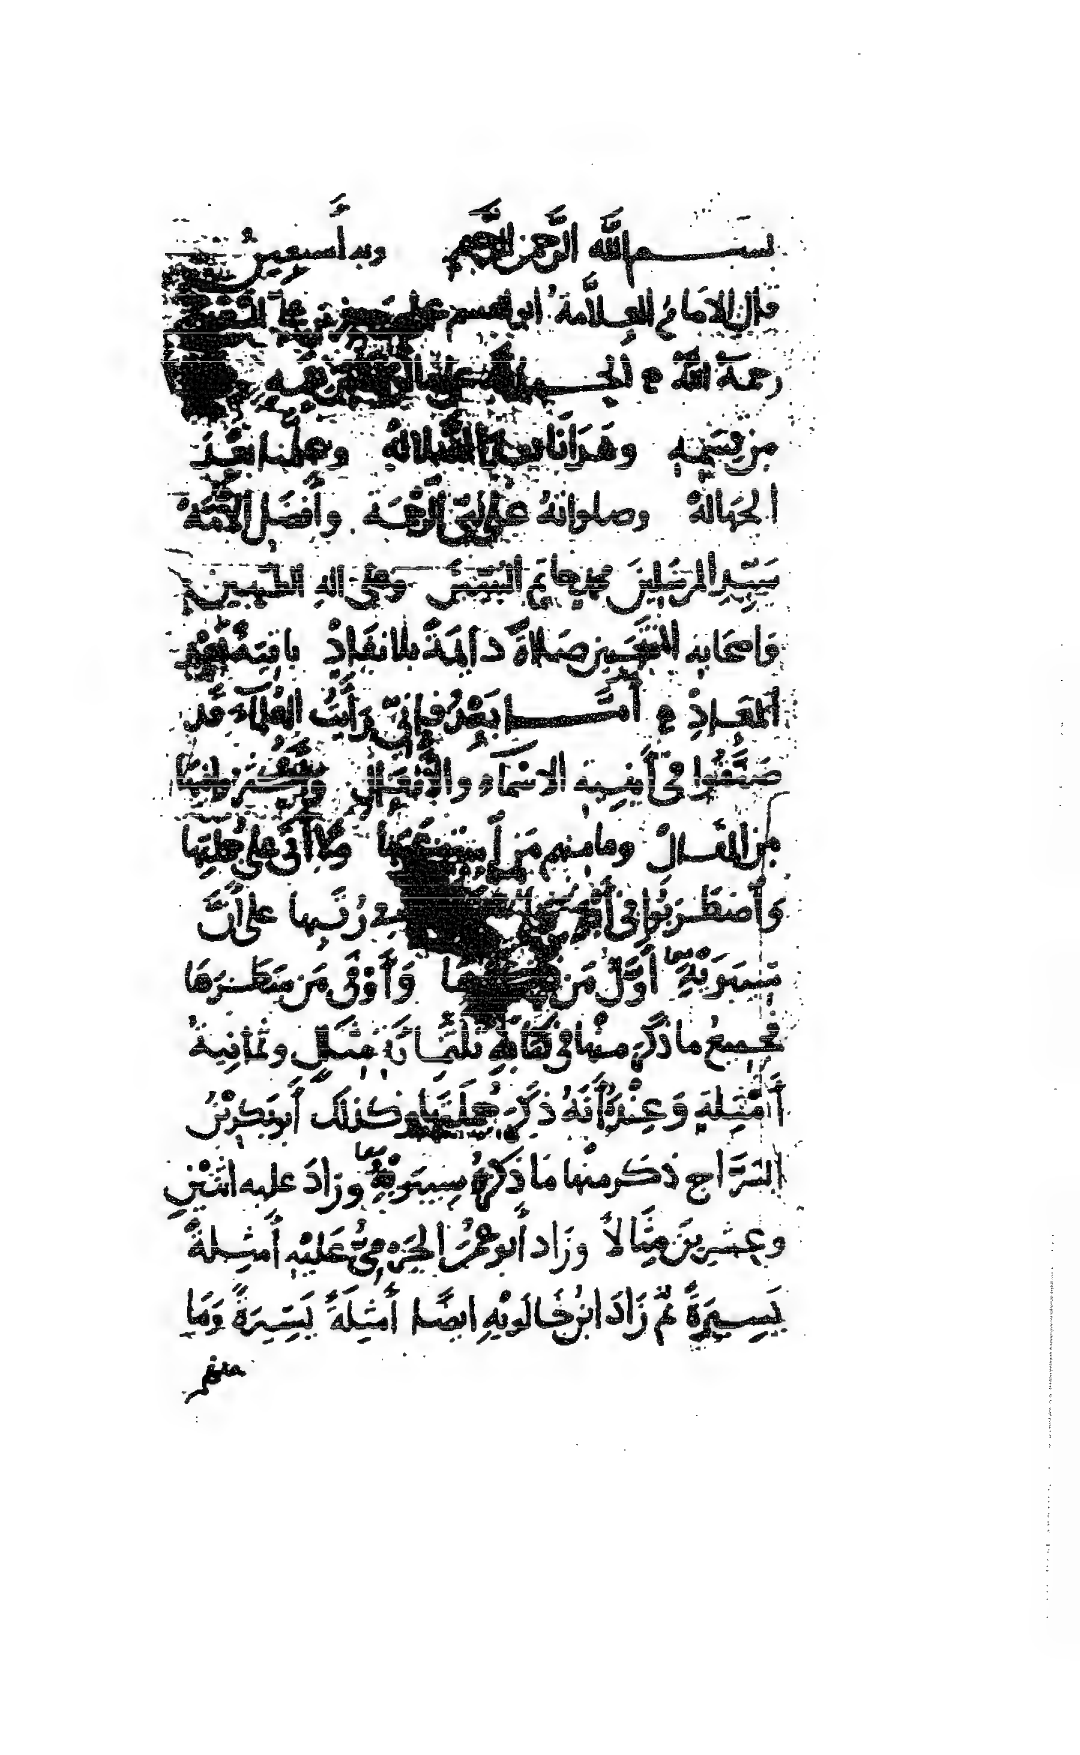 بسم الله الرحمن الرحيم وبه أستعين
قال الامام العلامة ابو القسم علي بن جعفر بن علي
رحمة الله الحمد لله على
من قسمه وهدانا بعد الضلالة وعلمنا بعد
الجهالة وصلواته على نبي الرحمة وأفضل الأمة
سيد المرسلين محمد خاتم النبيين وعلى اله الطيبين
واصحابه المنتجبين صلاة دائمة بلا نفاد باقية
المعاد أما بعد فإني رأيت العلماء قد
صنفوا في أبنية الاسماء والأفعال وأكثروا فيها
من المقال وما منهم من استوعبها ولا أتى على جملتها
وأضطربوا في رتبها على أن
سيبويه أول من ذكرها وأوفى من سطرها
فجميع ما ذكر منها في كتابه ثلثمائة مثال وثمانية
أمثلة وعنده أنه ذكر جملتها وكذلك أبو بكر بن
السراج ذكر منها ما ذكره سيبويه وزاد عليه اثنين
وعشرين مثالا وزاد أبو عمر الجرمي عليه أمثلة
يسيرة ثم زاد ابن خالويه ايضا أمثلة يسيرة وما
منهم